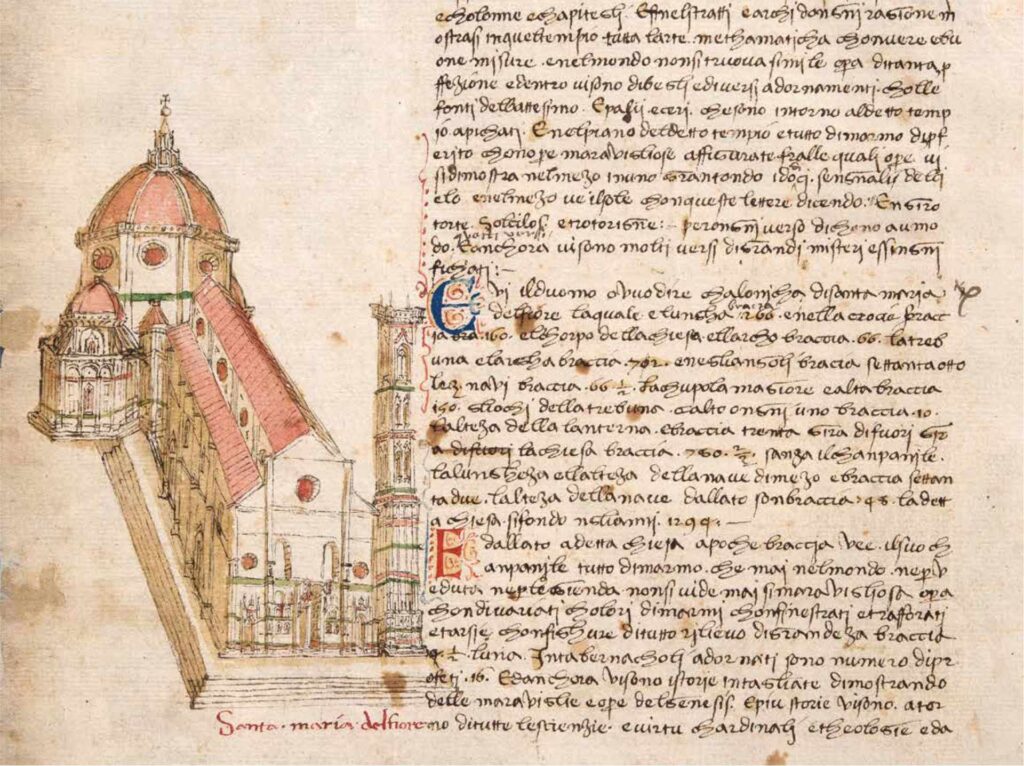 e cholonne e chapitegli. Effnelstratti e archi dongni ragione m
ostrasi inqueltempio tutta larte methamaticha chonvere e bu
one misure. e nelmondo nonsi truova simile opa ditanta p
ffezione e dentro visono dibegli e diversi adornamenti cholle
fonti delbattesimo. E pasii eceri. chesono intorno aldetto temp
io apichati. E nelpiano deldetto tempio e tutto dimarmo dipf
erito chon ope maravigliose affigurate fralle quali ope vi
sidimostra nelmezo inuno grantondo idoci sengnali delci
elo enelmezo ve ilsole chonqueste lettere dicendo. En giro
torte. Sol ciclos. et rotor igne: perongni verso dichono aumo
do. E anchora visono molti versi digrandi misteri essingni
fichati:
Evi ilduomo o vuo dire chalonicha disanta maria
delfiore laquale e lungha braccia 260. e nella croce bracc
ia 160. elchorpo della chiesa ellarcho braccia. 66. latreb
una e largha braccia. 70½. e negliangoli braccia settanta otto
le 3 navi braccia. 66 ½. lachupola magiore e alta braccia
150. gliochi dellatrebuna. e alto ongni uno braccia. 10.
lalteza della lanterna. e braccia trenta gira difuori gir
a difuori lachiesa braccia. 760. sanza ilchanpanile.
lalungheza ellalteza dellanave dimezo e braccia settan
ta due. lalteza della nave dallato son braccia. 48. ladett
a chiesa sifondo negliannii. 1294.
E dallato adetta chiesa apoche braccia vee ilsuo ch
anpanile tutto dimarmo. che mai nelmondo ne p v
eduta ne p legienda nonsi vide mai simaravigliosa opa
chondivariati cholori dimarmi chonfinestrati et rafforati
etarsie chonfighure ditutto rilievo digrandeza braccia
4 ½ luna. Intabernacholi adornati sono numero dipr
ofeti. 16. E danchora visono istorie intagliate dimostrando
delle maraviglie e ope delgenesis. E piu storie visono. ator
no ditutte lescienzie. e virtu chardinali e theologie e da
Santa. maria. delfiore